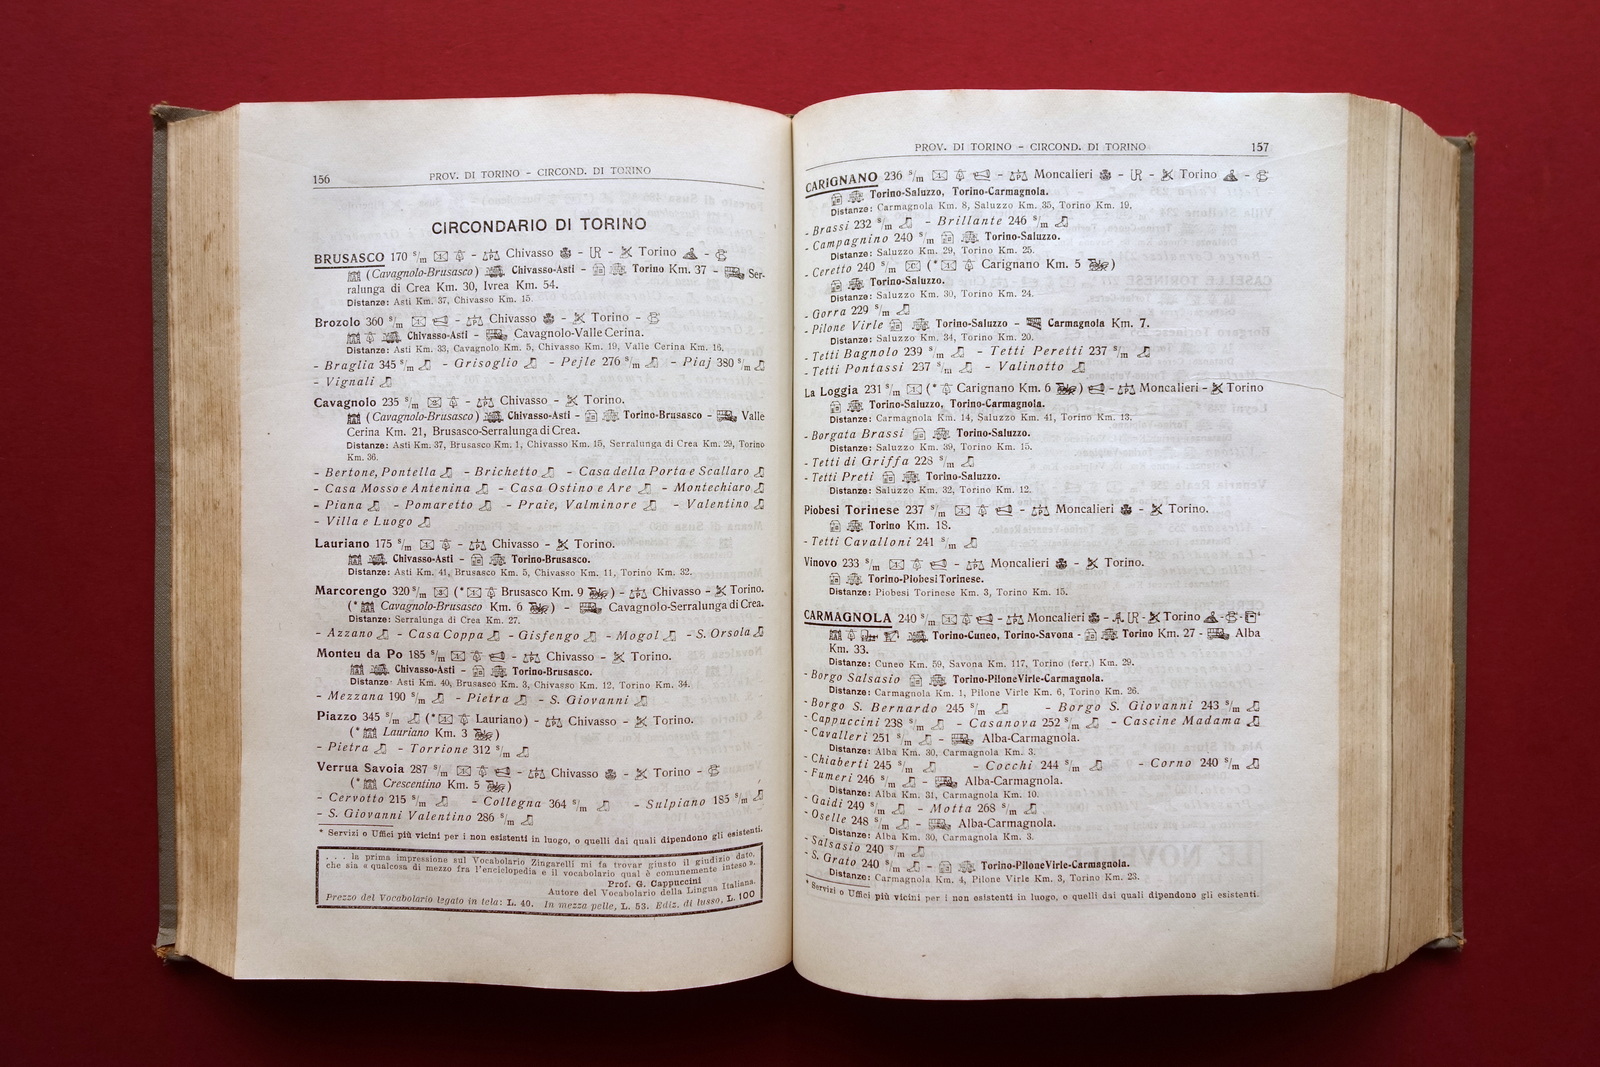 156 PROV. DI TORINO - CIRCOND. DI TORINO
CIRCONDARIO DI TORINO
BRUSASCO 170 s/m - Chivasso - R - Torino -
(Cavagnolo-Brusasco) Chivasso-Asti - Torino Km. 37 - Ser-
ralunga di Crea Km. 30, Ivrea Km. 54.
Distanze: Asti Km. 37, Chivasso Km. 15.
Brozolo 360 s/m - Chivasso - Torino -
Chivasso-Asti - Cavagnolo-Valle Cerina.
Distanze: Asti Km. 33, Cavagnolo Km. 5, Chivasso Km. 19, Valle Cerina Km. 16.
- Braglia 345 s/m - Grisoglio - Pejle 276 s/m - Piaj 380 s/m
- Vignali
Cavagnolo 235 s/m - Chivasso - Torino.
(Cavagnolo-Brusasco) Chivasso-Asti - Torino-Brusasco - Valle
Cerina Km. 21, Brusasco-Serralunga di Crea.
Distanze: Asti Km. 37, Brusasco Km. 1, Chivasso Km. 15, Serralunga di Crea Km. 29, Torino
Km. 36.
- Bertone, Pontella - Brichetto - Casa della Porta e Scallaro
- Casa Mosso e Antenina - Casa Ostino e Are - Montechiaro
- Piana - Pomaretto - Praie, Valminore - Valentino
- Villa e Luogo
Lauriano 175 s/m - Chivasso - Torino.
Chivasso-Asti - Torino-Brusasco.
Distanze: Asti Km. 41, Brusasco Km. 5, Chivasso Km. 11, Torino Km. 32.
Marcorengo 320 s/m (* Brusasco Km. 9) - Chivasso - Torino.
(* Cavagnolo-Brusasco Km. 6) - Cavagnolo-Serralunga di Crea.
Distanze: Serralunga di Crea Km. 27.
- Azzano - Casa Coppa - Gisfengo - Mogol - S. Orsola
Monteu da Po 185 s/m - Chivasso - Torino.
Chivasso-Asti - Torino-Brusasco.
Distanze: Asti Km. 40, Brusasco Km. 3, Chivasso Km. 12, Torino Km. 34.
- Mezzana 190 s/m - Pietra - S. Giovanni
Piazzo 345 s/m (* Lauriano) - Chivasso - Torino.
(* Lauriano Km. 3)
- Pietra - Torrione 312 s/m
Verrua Savoia 287 s/m - Chivasso - Torino -
(* Crescentino Km. 5)
- Cervotto 215 s/m - Collegna 364 s/m - Sulpiano 185 s/m
- S. Giovanni Valentino 286 s/m
* Servizi o Uffici più vicini per i non esistenti in luogo, o quelli dai quali dipendono gli esistenti.
. . . la prima impressione sul Vocabolario Zingarelli mi fa trovar giusto il giudizio dato,
che sia « qualcosa di mezzo fra l'enciclopedia e il vocabolario qual è comunemente inteso ».
Prof. G. Cappuccini
Autore del Vocabolario della Lingua Italiana.
Prezzo del Vocabolario legato in tela: L. 40. In mezza pelle, L. 53. Ediz. di lusso, L. 100
PROV. DI TORINO - CIRCOND. DI TORINO 157
CARIGNANO 236 s/m - Moncalieri - R - Torino -
Torino-Saluzzo, Torino-Carmagnola.
Distanze: Carmagnola Km. 8, Saluzzo Km. 35, Torino Km. 19.
- Brassi 232 s/m - Brillante 246 s/m
- Campagnino 240 s/m Torino-Saluzzo.
Distanze: Saluzzo Km. 29, Torino Km. 25.
- Ceretto 240 s/m (* Carignano Km. 5)
Torino-Saluzzo.
Distanze: Saluzzo Km. 30, Torino Km. 24.
- Gorra 229 s/m
- Pilone Virle Torino-Saluzzo - Carmagnola Km. 7.
Distanze: Saluzzo Km. 34, Torino Km. 20.
- Tetti Bagnolo 239 s/m - Tetti Peretti 237 s/m
- Tetti Pontassi 237 s/m - Valinotto
La Loggia 231 s/m (* Carignano Km. 6) - Moncalieri - Torino
Torino-Saluzzo, Torino-Carmagnola.
Distanze: Carmagnola Km. 14, Saluzzo Km. 41, Torino Km. 13.
- Borgata Brassi Torino-Saluzzo.
Distanze: Saluzzo Km. 39, Torino Km. 15.
- Tetti di Griffa 228 s/m
- Tetti Preti Torino-Saluzzo.
Distanze: Saluzzo Km. 32, Torino Km. 12.
Piobesi Torinese 237 s/m - Moncalieri - Torino.
Torino Km. 18.
- Tetti Cavalloni 241 s/m
Vinovo 233 s/m - Moncalieri - Torino.
Torino-Piobesi Torinese.
Distanze: Piobesi Torinese Km. 3, Torino Km. 15.
CARMAGNOLA 240 s/m - Moncalieri - R - Torino
Torino-Cuneo, Torino-Savona - Torino Km. 27 - Alba
Km. 33.
Distanze: Cuneo Km. 59, Savona Km. 117, Torino (ferr.) Km. 29.
- Borgo Salsasio Torino-Pilone Virle-Carmagnola.
Distanze: Carmagnola Km. 1, Pilone Virle Km. 6, Torino Km. 26.
- Borgo S. Bernardo 245 s/m - Borgo S. Giovanni 243 s/m
- Cappuccini 238 s/m - Casanova 252 s/m - Cascine Madama
- Cavalleri 251 s/m - Alba-Carmagnola.
Distanze: Alba Km. 30, Carmagnola Km. 3.
- Chiaberti 245 s/m - Cocchi 244 s/m - Corno 240 s/m
- Fumeri 246 s/m - Alba-Carmagnola.
Distanze: Alba Km. 31, Carmagnola Km. 10.
- Gaidi 249 s/m - Motta 268 s/m
- Oselle 248 s/m - Alba-Carmagnola.
Distanze: Alba Km. 30, Carmagnola Km. 3.
- Salsasio 240 s/m
- S. Grato 240 s/m - Torino-Pilone Virle-Carmagnola.
Distanze: Carmagnola Km. 4, Pilone Virle Km. 3, Torino Km. 23.
* Servizi o Uffici più vicini per i non esistenti in luogo, o quelli dai quali dipendono gli esistenti.